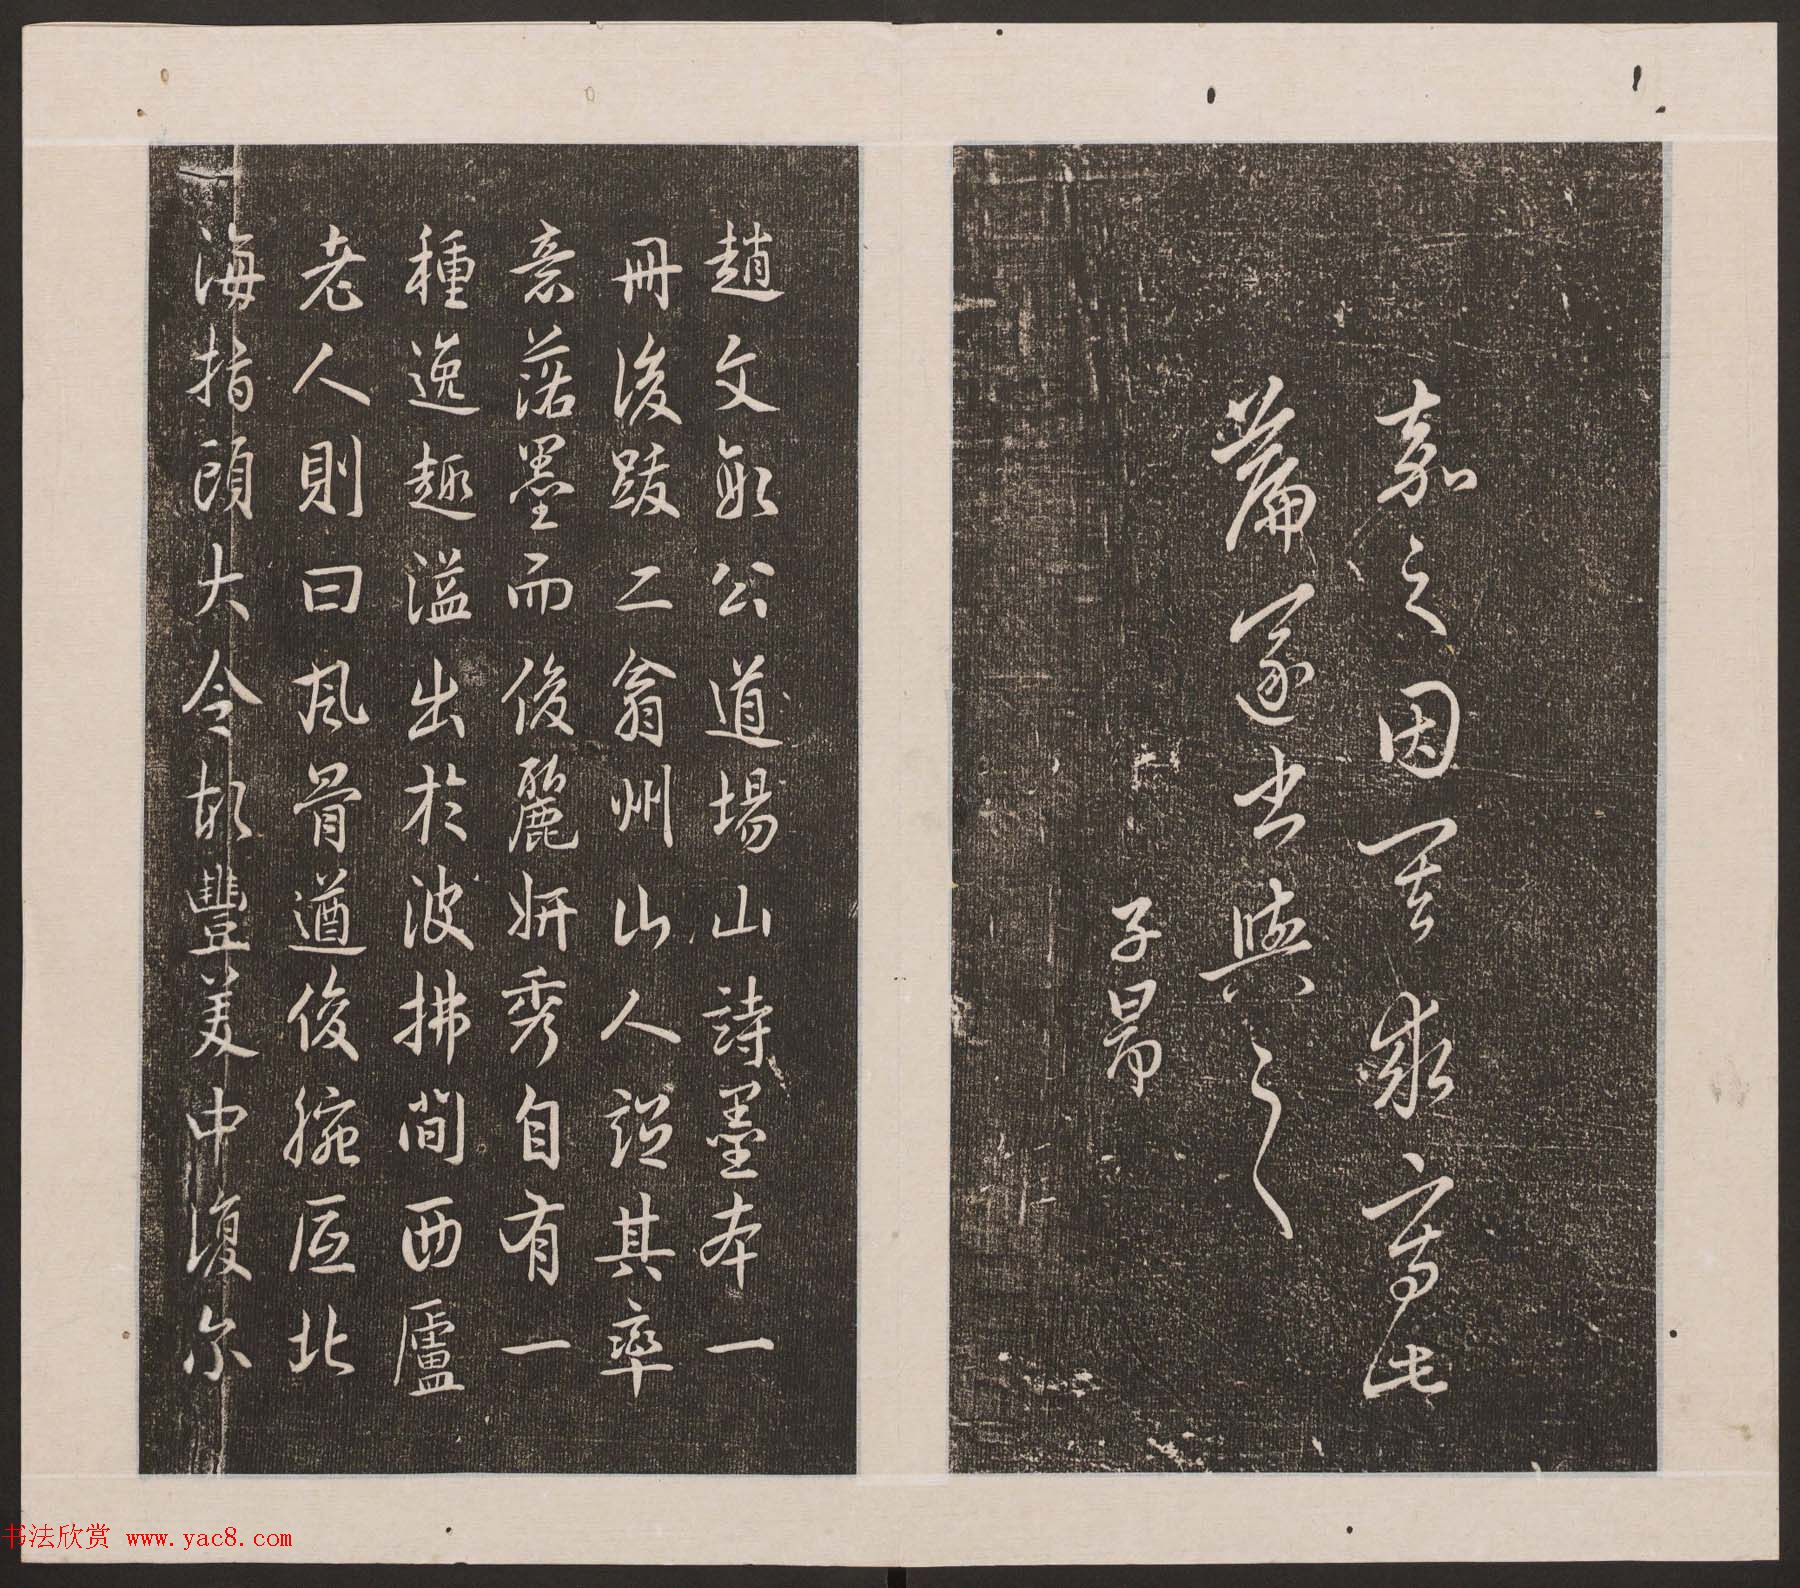 嘉之因其求寫此
篇遂書與之
子昂
趙文敏公道場山詩墨本一
冊後跋二翁州山人謂其率
意落墨而俊麗妍秀自有一
種逸趣溢出於波拂間西廬
老人則曰風骨遒俊腕匹北
海指頭大令故豐美中復尔
书法欣赏 www.yac8.com